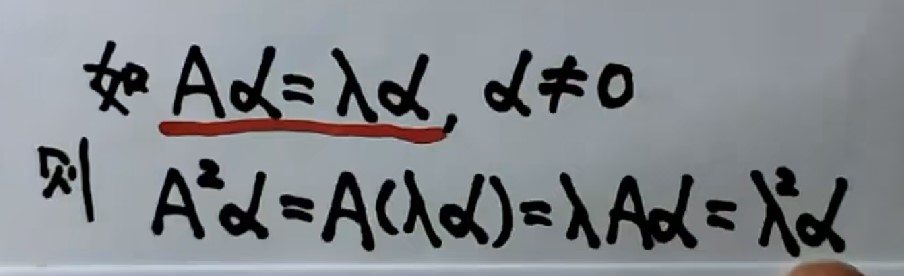 如 Aα=λα, α≠0
则 A²α=A(λα)=λAα=λ²α